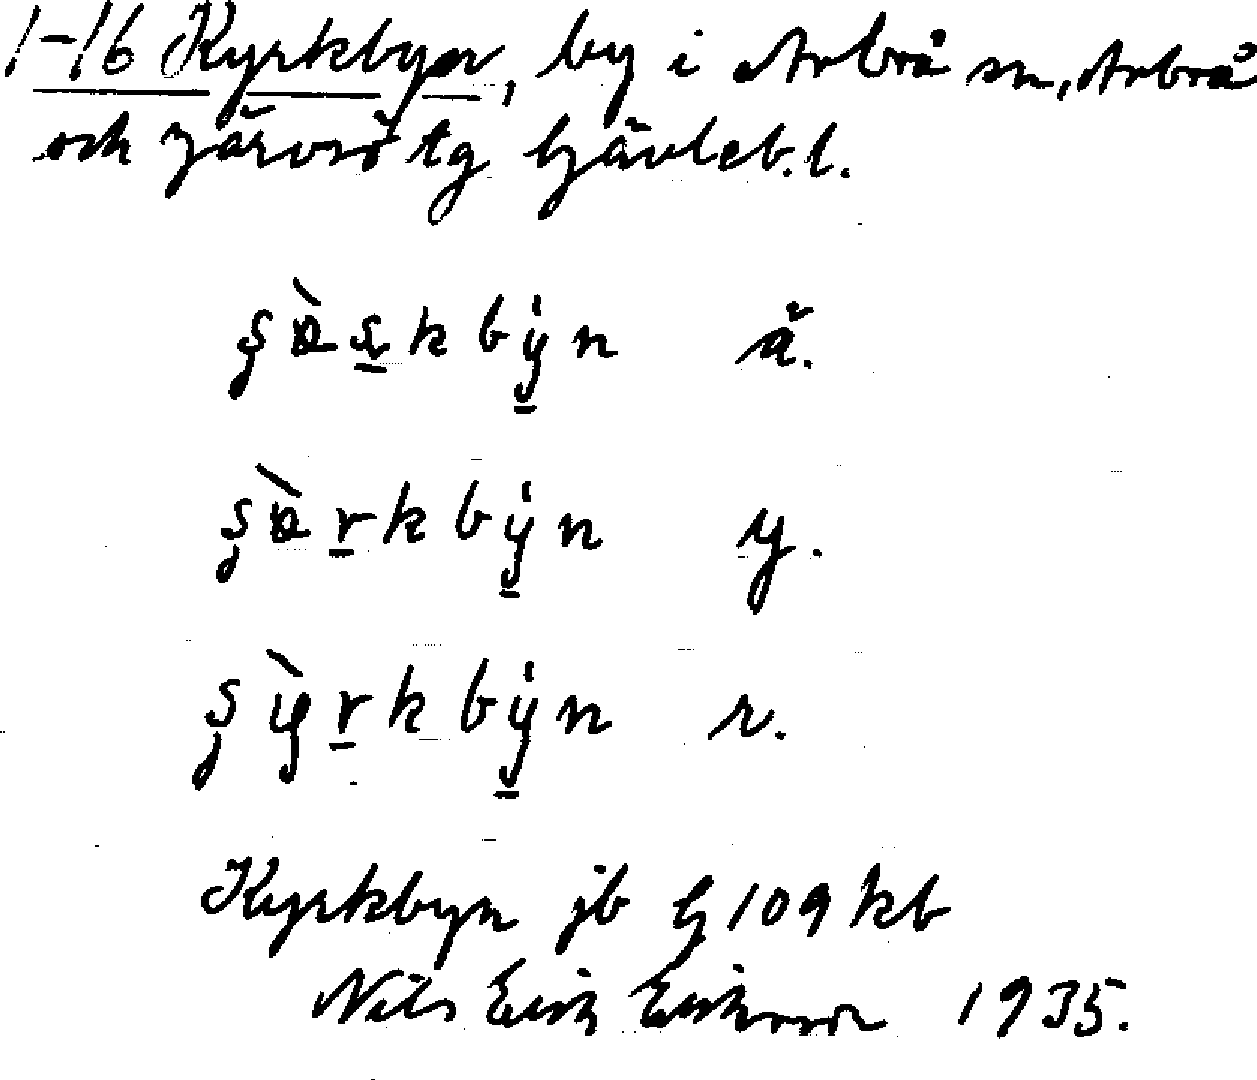 1-16 Kyrkbyn, by i Arbrå sn, Arbrå
och Järvsö tg Gävleb. l.
ʂɵ̀ʂkbyn ä.
ʂɵ̀rkbyn y.
ʂỳrkbyn r.
Kyrkbyn jb G 109 kb
Nils Erik Eriksson 1935.